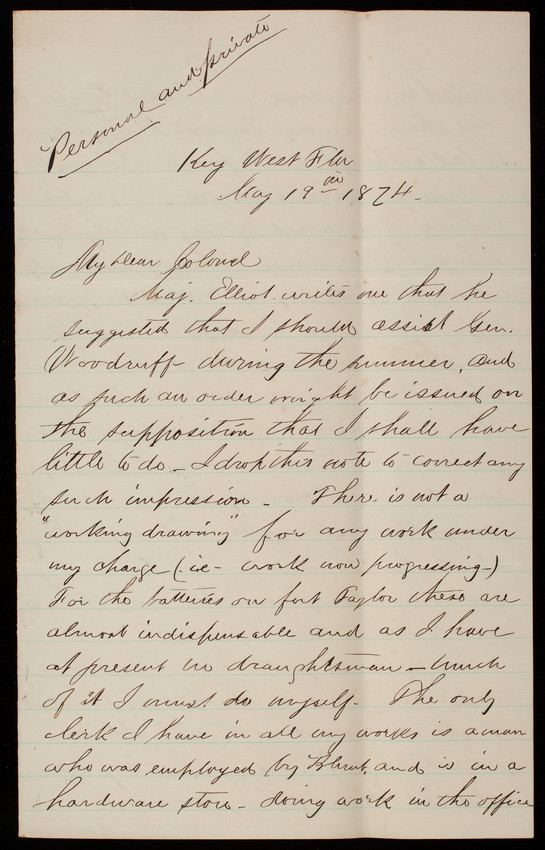 Personal and private
Key West Fla
May 19th 1874.
My dear Colonel
Maj. Elliot writes me that he
suggested that I should assist Gen.
Woodruff during the summer, and
as such an order might be issued on
the supposition that I shall have
little to do - I drop this note to correct any
such impression - There is not a
"working drawing" for any work under
my charge (i.e - work now progressing -)
For the batteries on fort Taylor these are
almost indispensable and as I have
at present no draughtsman - much
of it I must do myself - The only
clerk I have in all my works is a man
who was employed by Blunt, and is in a
hardware store - doing work in the office